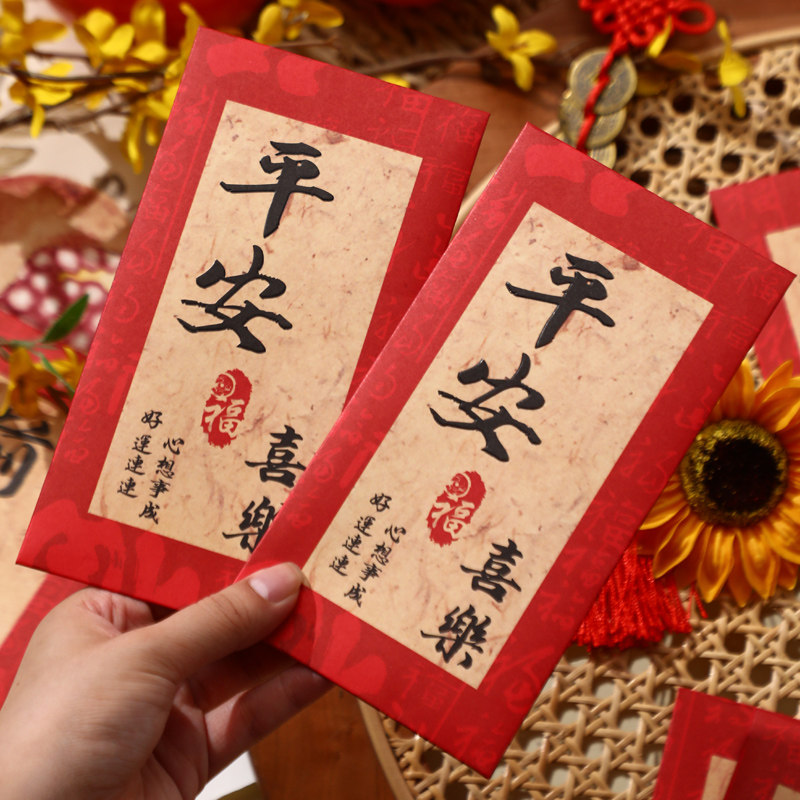 平安
福
喜樂
心想事成
好運連連
平安
福
喜樂
心想事成
好運連連